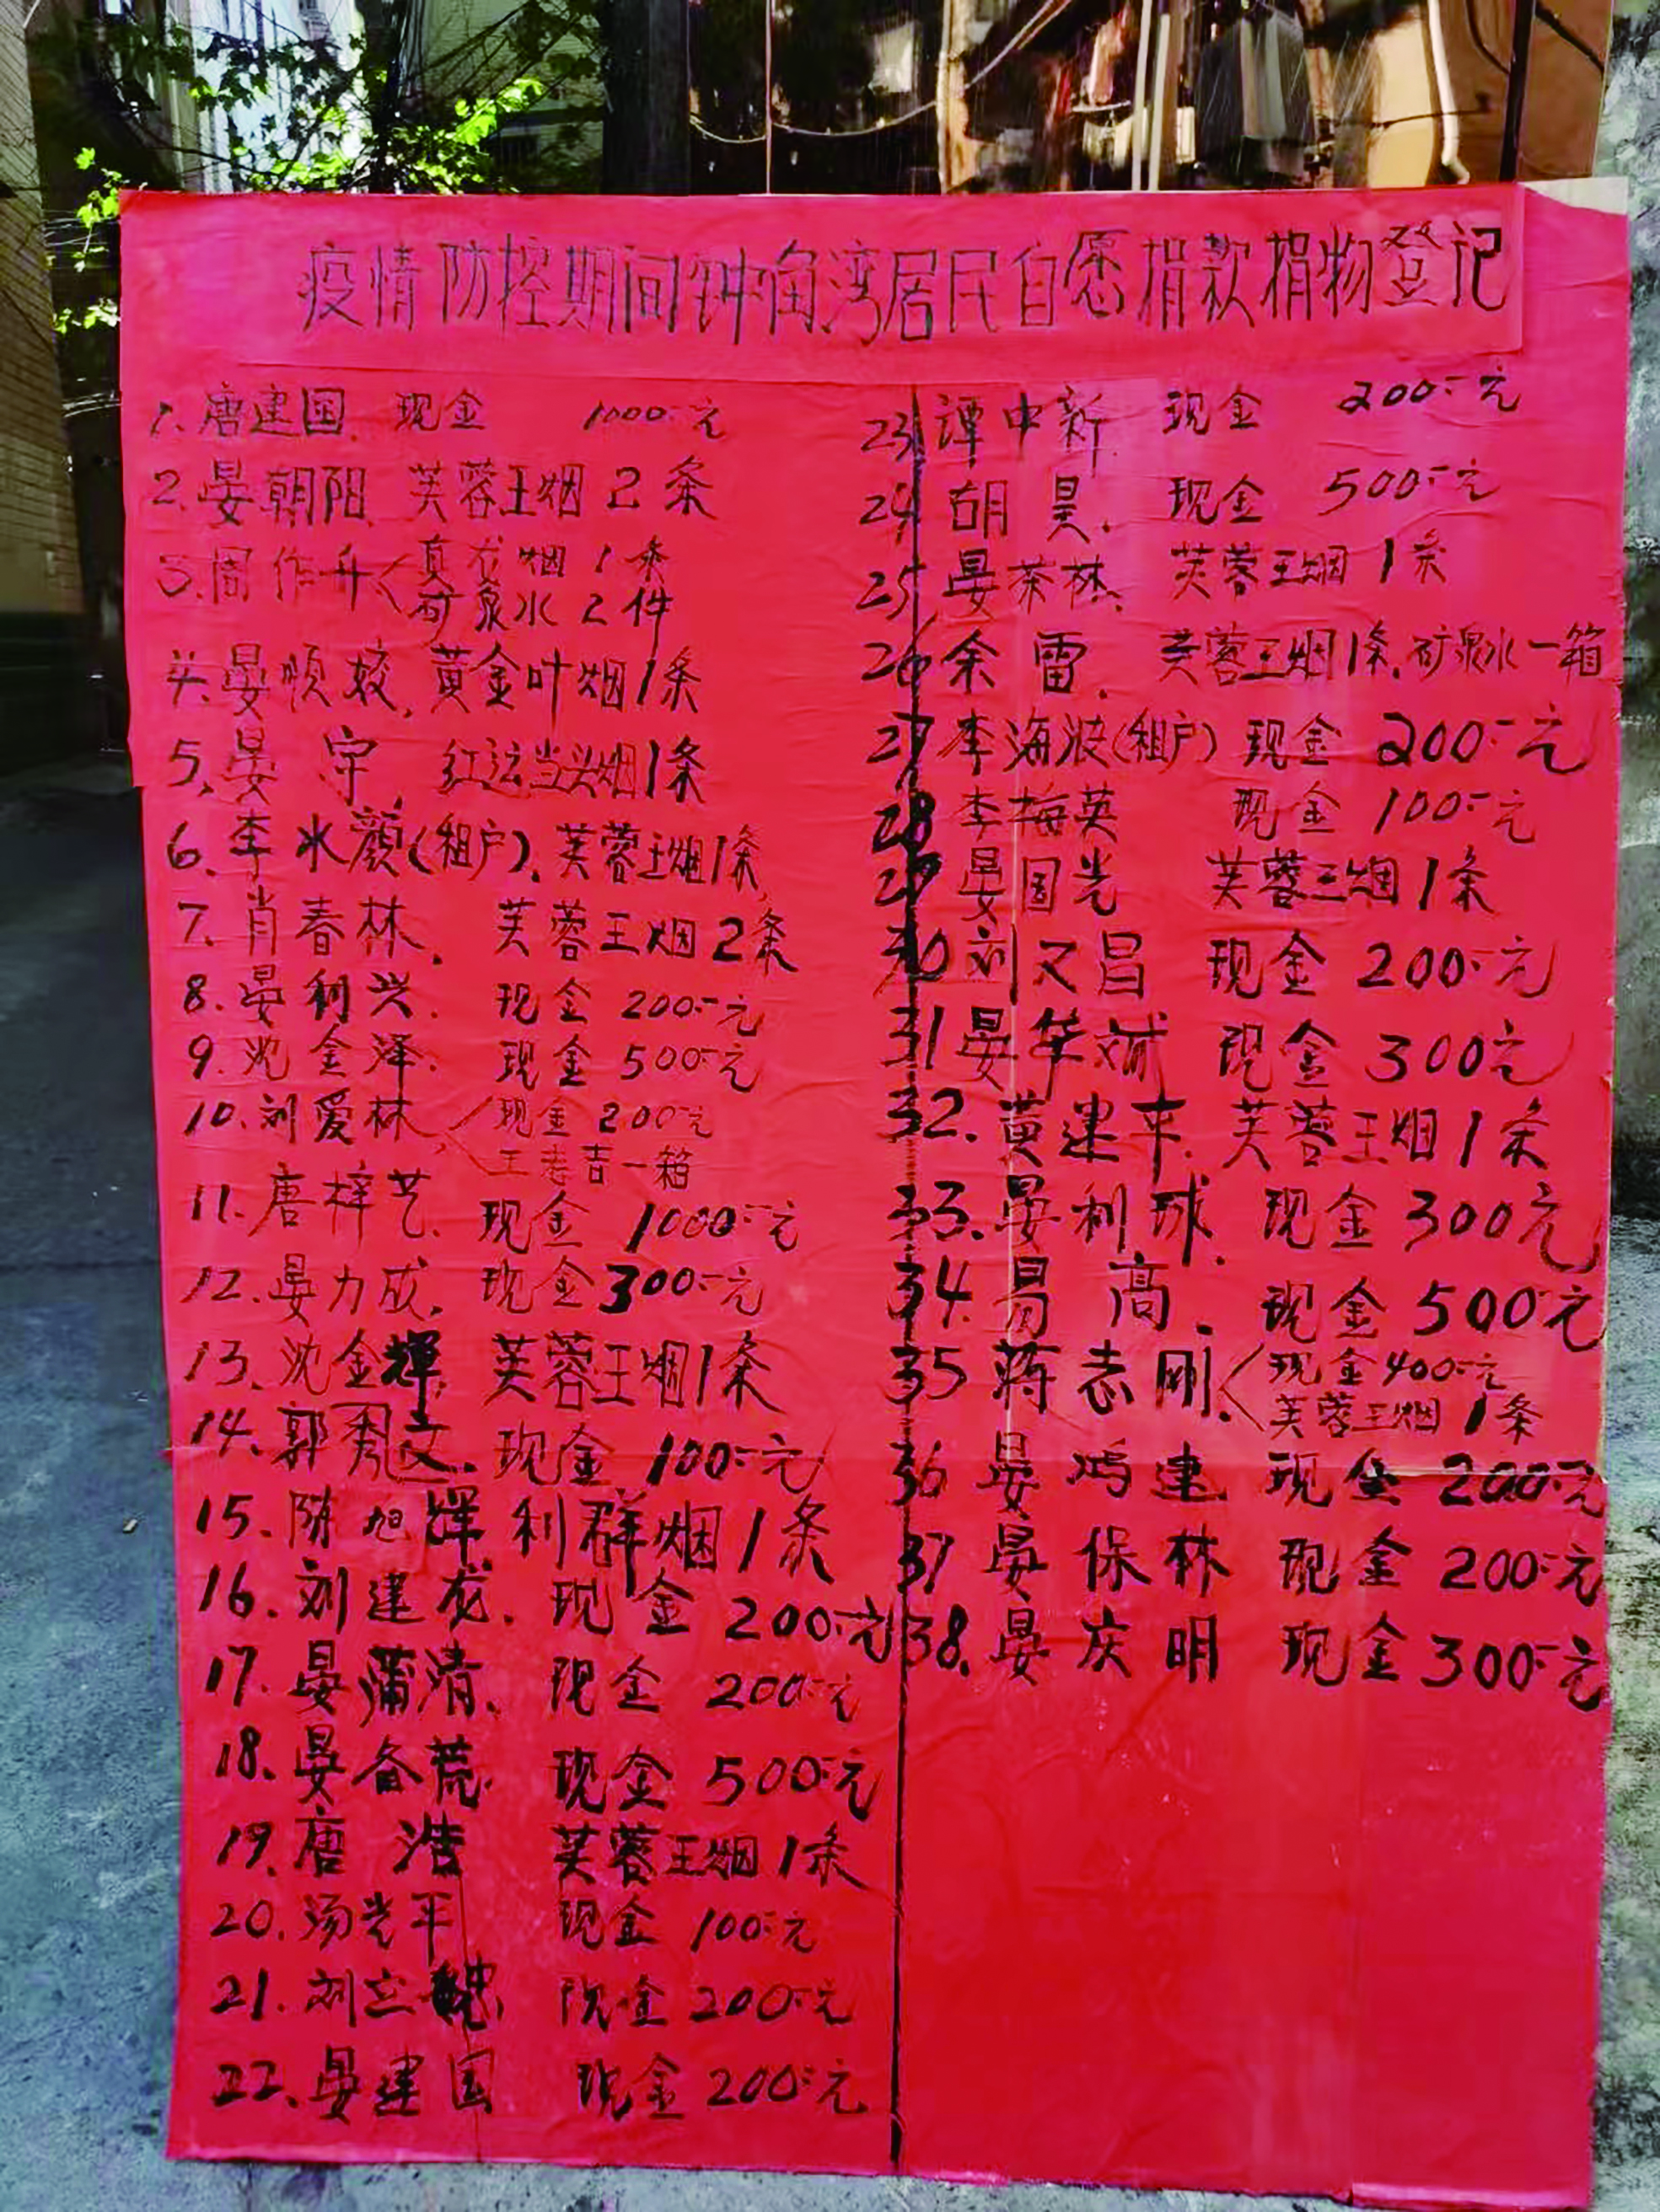 疫情防控期间钟角湾居民自愿捐款捐物登记
1. 唐建国 现金 1000元
2. 晏朝阳 芙蓉王烟2条
3. 周作升 真龙烟1条
矿泉水2件
4. 晏 黄金叶烟1条
5. 晏 红运当头烟1条
6. 李水颜(租户). 芙蓉王烟1条
7. 肖春林. 芙蓉王烟2条
8. 晏利兴. 现金 200元
9. 沈金泽. 现金 500元
10. 刘爱林 现金 200元
王老吉一箱
11. 唐梓艺. 现金 1000元
12. 晏力成. 现金 300元
13. 沈金辉 芙蓉王烟1条
14. 郭秀文. 现金 100元
15. 陈旭辉 利群烟1条
16. 刘建龙. 现金 200元
17. 晏蒲清. 现金 200元
18. 晏备荒 现金 500元
19. 唐浩 芙蓉王烟1条
20. 汤光平 现金 100元
21. 刘立 现金 200元
22. 晏建国 现金 200元
23 谭中新 现金 200元
24 胡昊. 现金 500元
25 晏茶林 芙蓉王烟1条
26 余雷. 芙蓉王烟1条. 矿泉水一箱
27 李海波(租户) 现金 200元
28 李梅英 现金 100元
29 晏国光 芙蓉王烟1条
30 刘又昌 现金 200元
31 晏华斌 现金 300元
32. 黄建平 芙蓉王烟1条
33. 晏利球. 现金 300元
34. 易高. 现金 500元
35 蒋志刚. 现金 400元
芙蓉王烟1条
36 晏鸿建 现金 200元
37 晏保林 现金 200元
38. 晏庆明 现金 300元